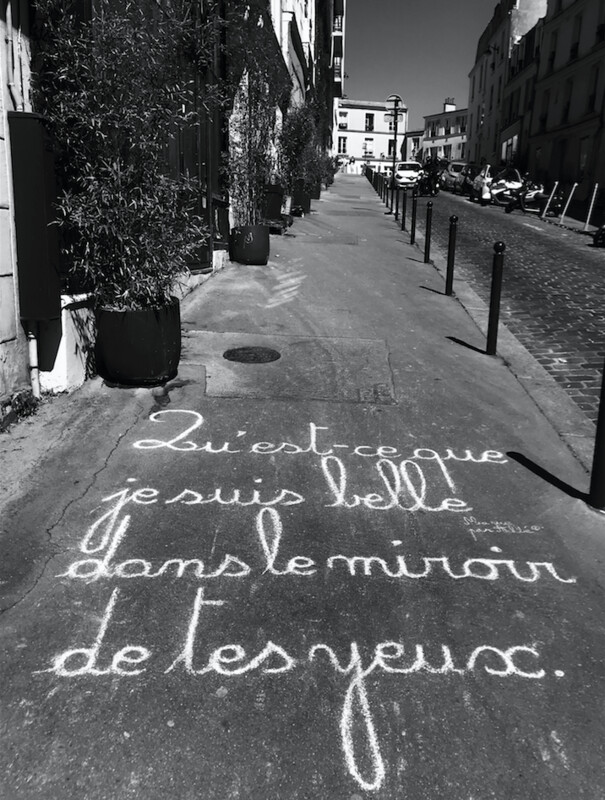 Qu'est-ce que
je suis belle
dans le miroir
de tes yeux.